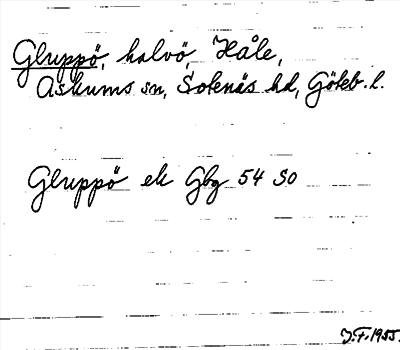 Gluppö, halvö, Håle,
Askums sn, Sotenäs hd, Göteb. l.
Gluppö ek Gbg 54 SO
J.F. 1955.